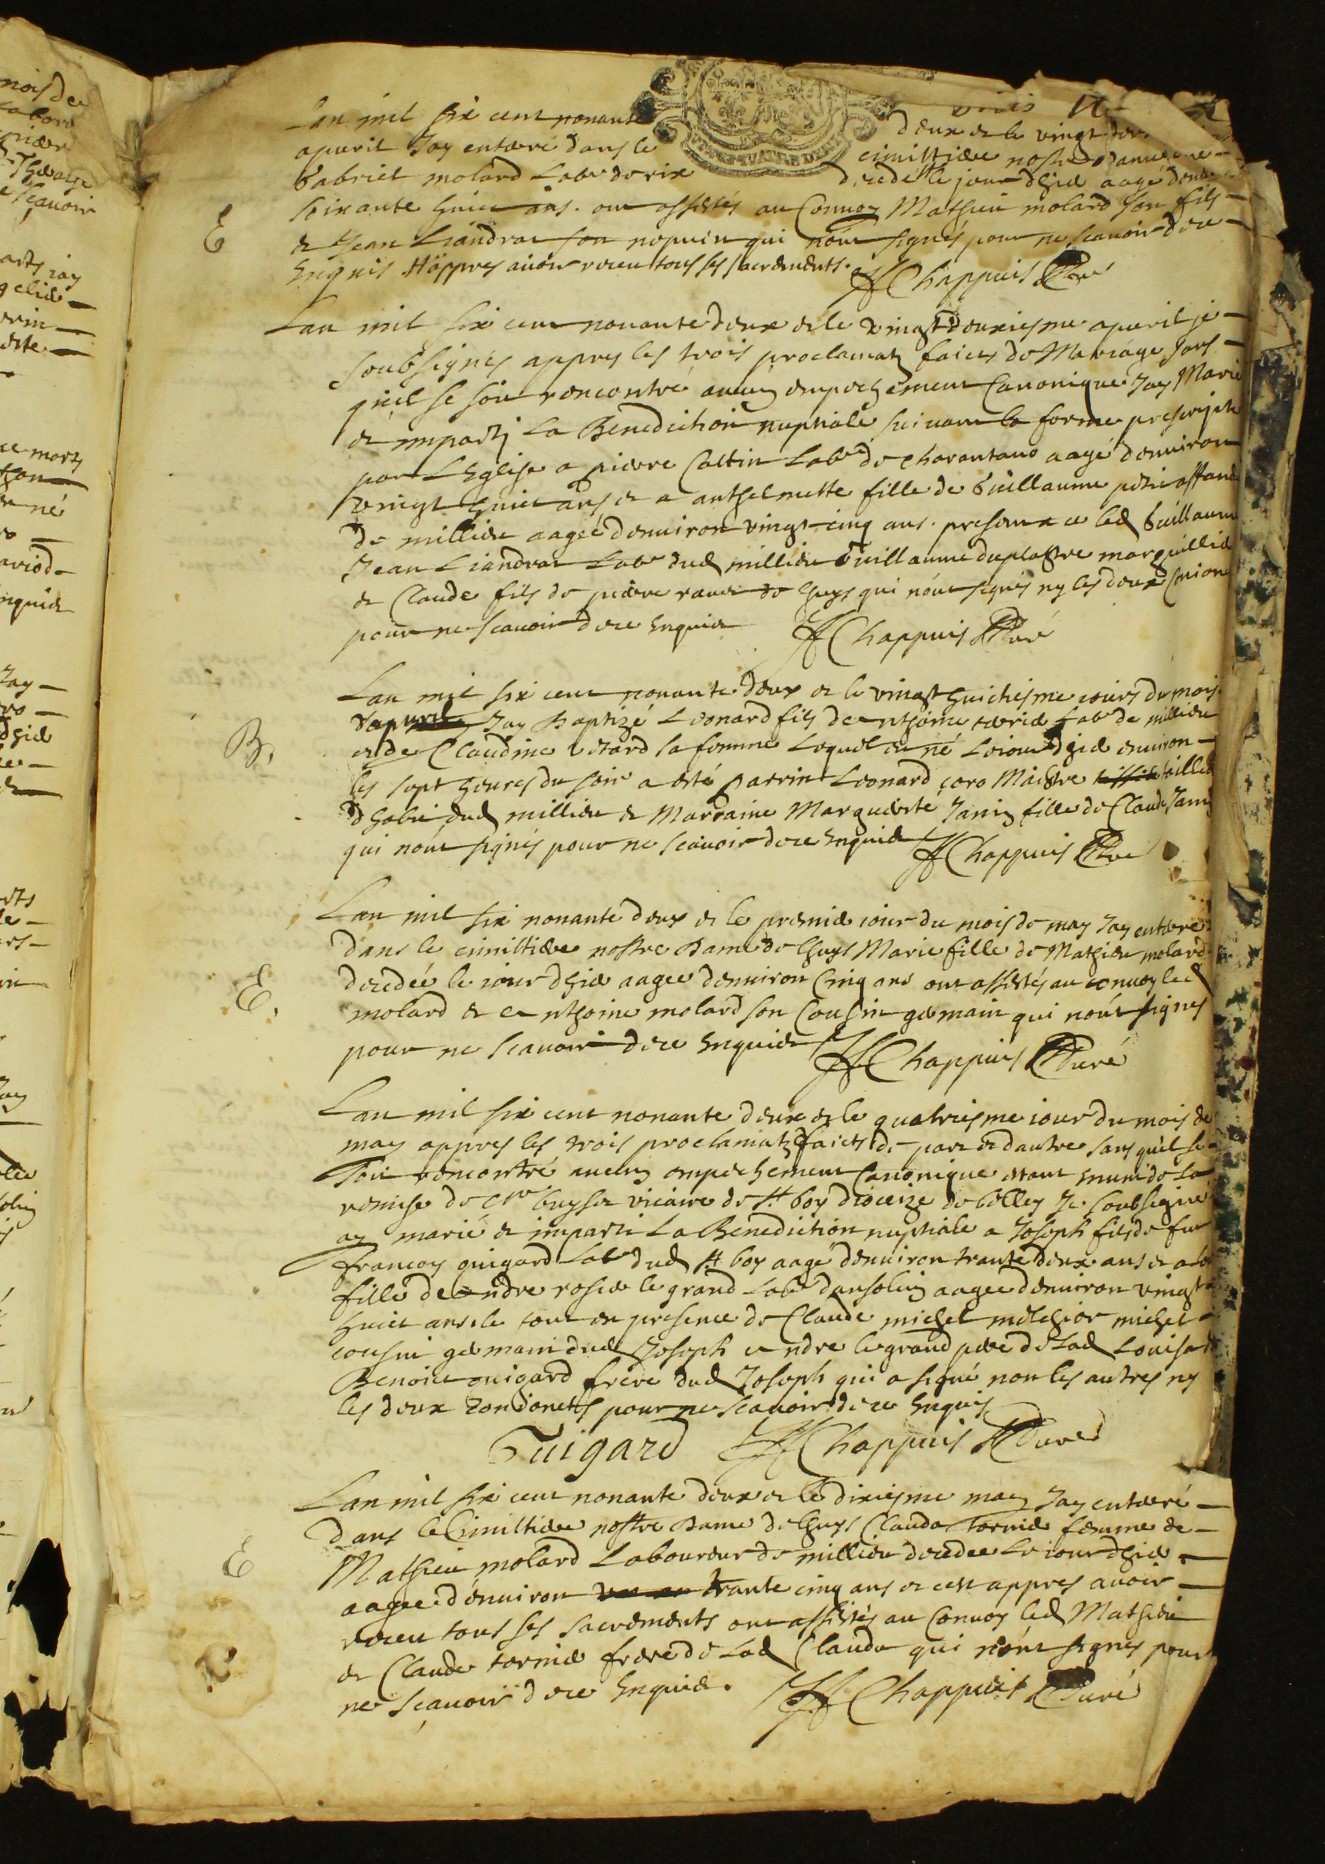 Lan mil six cent nonante deux et le vingt
apvril Jay enterré dans le cimistiere nostre dame
Gabriel molard Lab decedé le jour dhier aagé denv
soixante huict ans. ont assistés au Convoy Mathieu molard son fils
E
et Jean Liandrat son nepveu qui nont signés pour ne scavoir de ce
Enquis et appres avoir receu tous ses sacrements. Chappuis Curé
Lan mil six cent nonante deux et le vingt deuxiesme apvril je
soubsignés appres les trois proclamats faicts de Mariage sans
quil se soit rencontré aucun empechement Canonique Jay Marié
et imparti La Benediction nuptiale suivant la forme prescripte
par LEglise a pierre Cattin Lab de charantano aagé denviron
vingt huict ans et a anthelmette fille de Guillaume
de millieu aagee denviron vingt cinq ans. present a ce led Guillaume
Jean Liandrat Lab dud millieu Guillaume duplastre marguillier
et Claude fils de pierre de huys qui nont signés ny les deux
pour ne scavoir de ce Enquis Chappuis Curé
Lan mil six cent nonante deux et le vingt huictiesme jours du mois
B.
dapvril Jay Baptizé Leonard fils de enthoine Lab de millieu
et de Claudine sa femme Lequel est né Le jour dhier environ
les sept heures du soir a esté parrin Leonard Maistre tailleur
dhabit dud millieu et Marraine Marguerite Janin fille de Claude Janin
qui nont signés pour ne scavoir de ce Enquis Chappuis Curé
Lan mil six nonante deux et le premier jour du mois de may Jay enterré
dans le cimistiere nostre Dame de huys Marie fille de Mathieu molard
E.
decedée le jour dhier aagee denviron Cinq ans ont assistés au convoy led
molard et enthoine molard son Cousin germain qui nont signés
pour ne scavoir de ce Enquis Chappuis Curé
Lan mil six cent nonante deux et le quatriesme jour du mois de
may appres les trois proclamats faicts de part et dautre sans quil se
soit rencontré aucun empechement Canonique estant muni de La
remise de vicaire de St boy diocèze de belley Je soubsigné
ay marié et imparti La Benediction nuptiale a Joseph fils de feu
francoy guigard Lab dud St boy aagé denviron trante deux ans et a
fille de endre rosier le grand Lab aagee denviron vingt
huict ans le tout en presence de Claude michel melchior michel
cousin germain dud Joseph endre le grand pere de Lad Louisa
Benoict guigard frere dud Joseph qui a signé non les autres ny
les deux pour ne scavoir de ce Enquis
Guigard Chappuis Curé
Lan mil six cent nonante deux et le dixiesme may Jay enterré
dans le Cimistiere nostre Dame de huys Claude tornier femme de
E
Mathieu molard Laboureur de millieu decedee Le jour dhier
aagee denviron trante cinq ans et cest appres avoir
receu tous ses sacrements ont assistés au Convoy led Mathieu
et Claude tornier frere de Lad Claude qui nont signés pour
ne scavoir de ce Enquis. Chappuis Curé